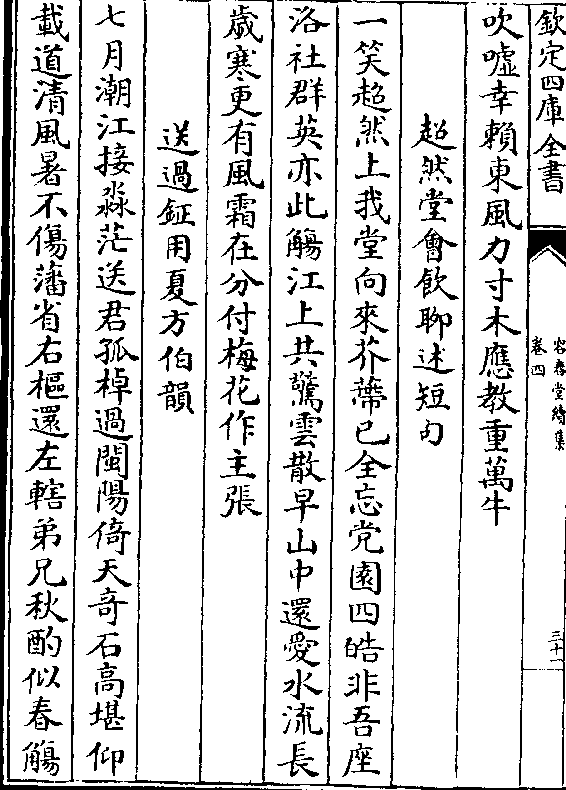 欽定四庫全書
容春堂續集
卷四
三十一
吹噓幸賴東風力寸木應教重萬牛
超然堂會飲聊述短句
一笑超然上我堂向來芥蔕已全忘党園四皓非吾座
洛社群英亦此觴江上共驚雲散早山中還愛水流長
歳寒更有風霜在分付梅花作主張
送過鉦用夏方伯韻
七月潮江接淼茫送君孤棹過閩陽倚天奇石髙堪仰
載道清風暑不傷藩省右樞還左轄弟兄秋酌似春觴